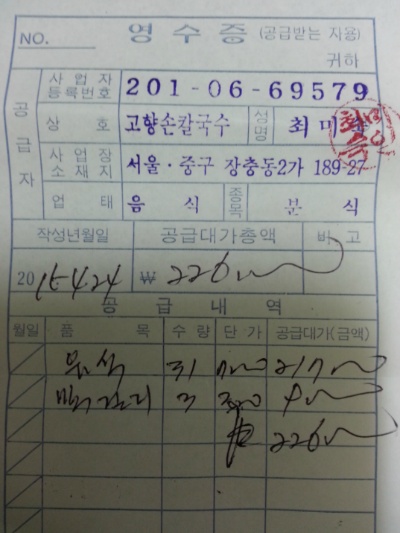 NO. 영수증 (공급받는 자용)
귀하
공급자
사업자 등록번호 201-06-69579
상호 고향손칼국수 성명 최미
사업장 소재지 서울·중구 장충동2가 189-27
업태 음식 종목 분식
작성년월일 공급대가총액 비고
2015.4.24 ₩ 226000
공급내역
월일 품목 수량 단가 공급대가(금액)
음식 31 7000 217000
막걸리 3 3000 9000
226000